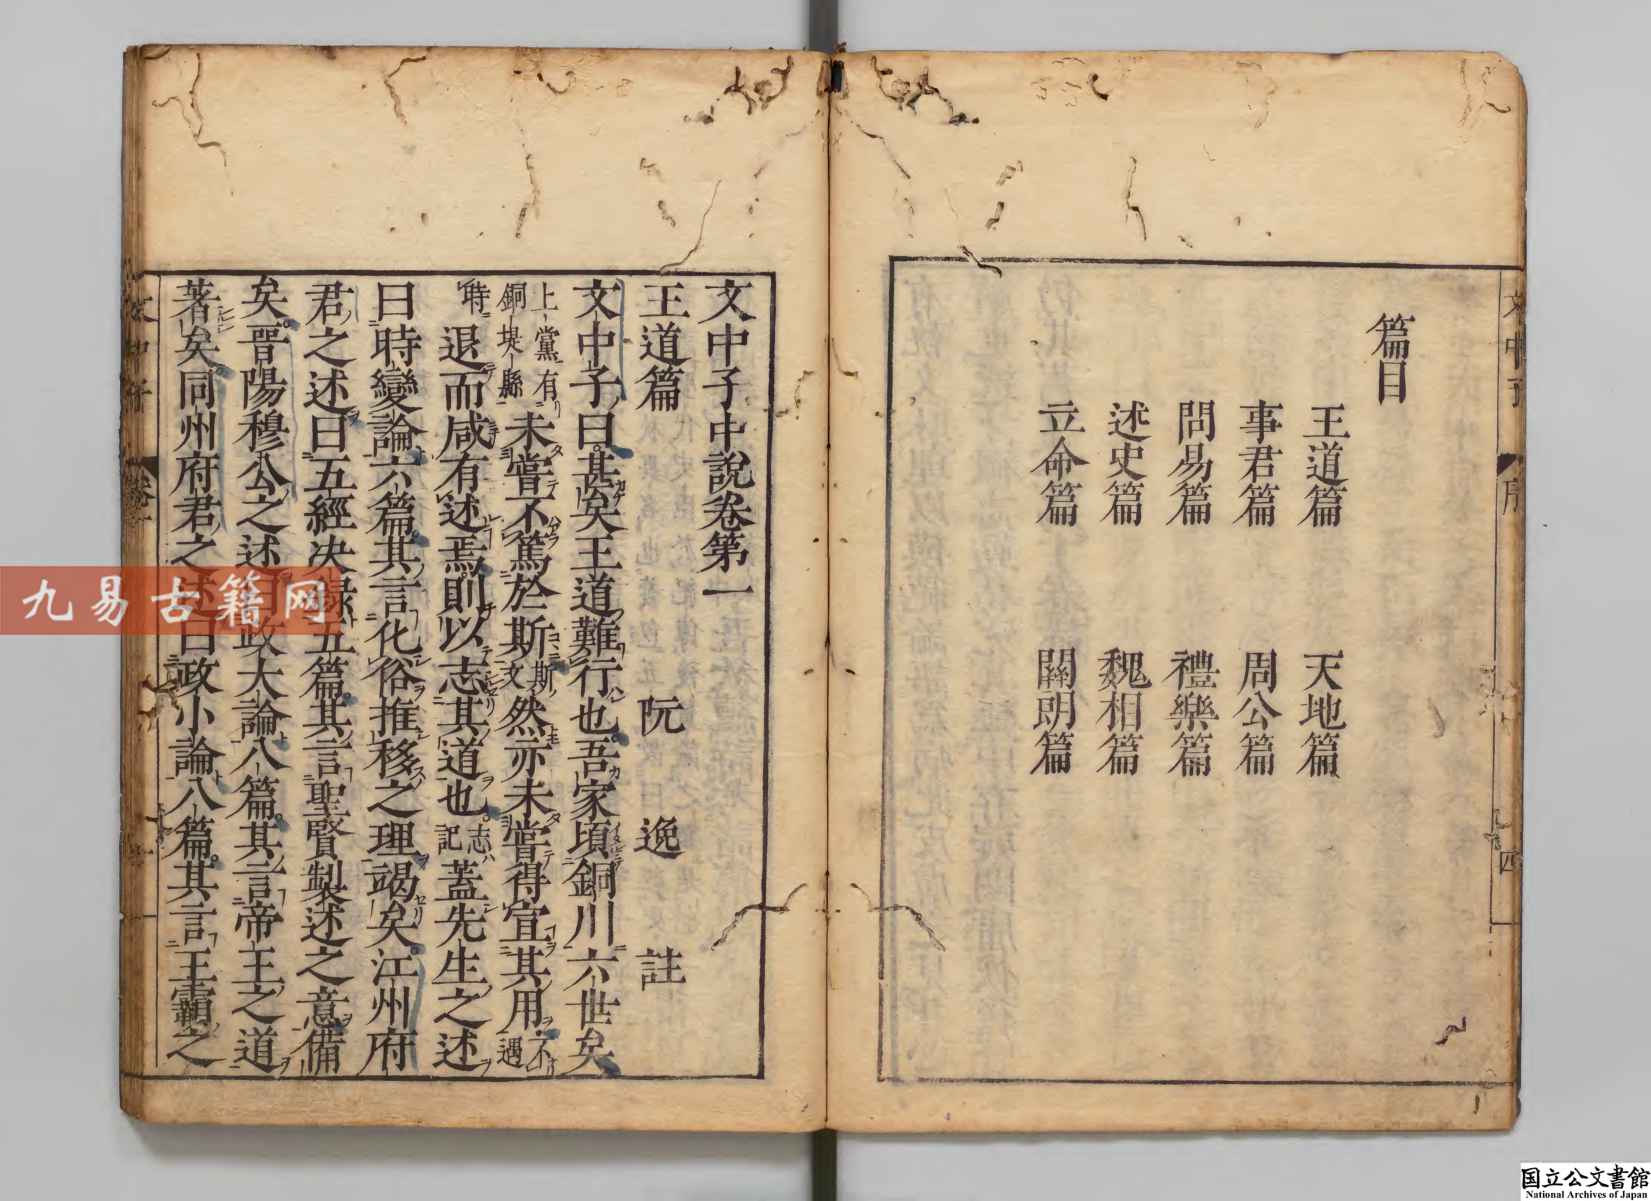 篇目
王道篇 天地篇
事君篇 周公篇
問易篇 禮樂篇
述史篇 魏相篇
立命篇 關朗篇
序
四
文中子中說卷第一
王道篇 阮 逸 註
文中子曰甚矣王道難行也吾家頃銅川六世矣
上黨有銅堤縣未嘗不篤於斯斯文然亦未嘗得宣其用不遇
時退而咸有述焉則以志其道也志記蓋先生之述
曰時變論六篇其言化俗推移之理竭矣江州府
君之述曰五經決錄五篇其言聖賢製述之意備
矣晉陽穆公之述曰政大論八篇其言帝王之道
著矣同州府君之述曰政小論八篇其言王霸之
九易古籍网
国立公文書館
National Archives of Japan